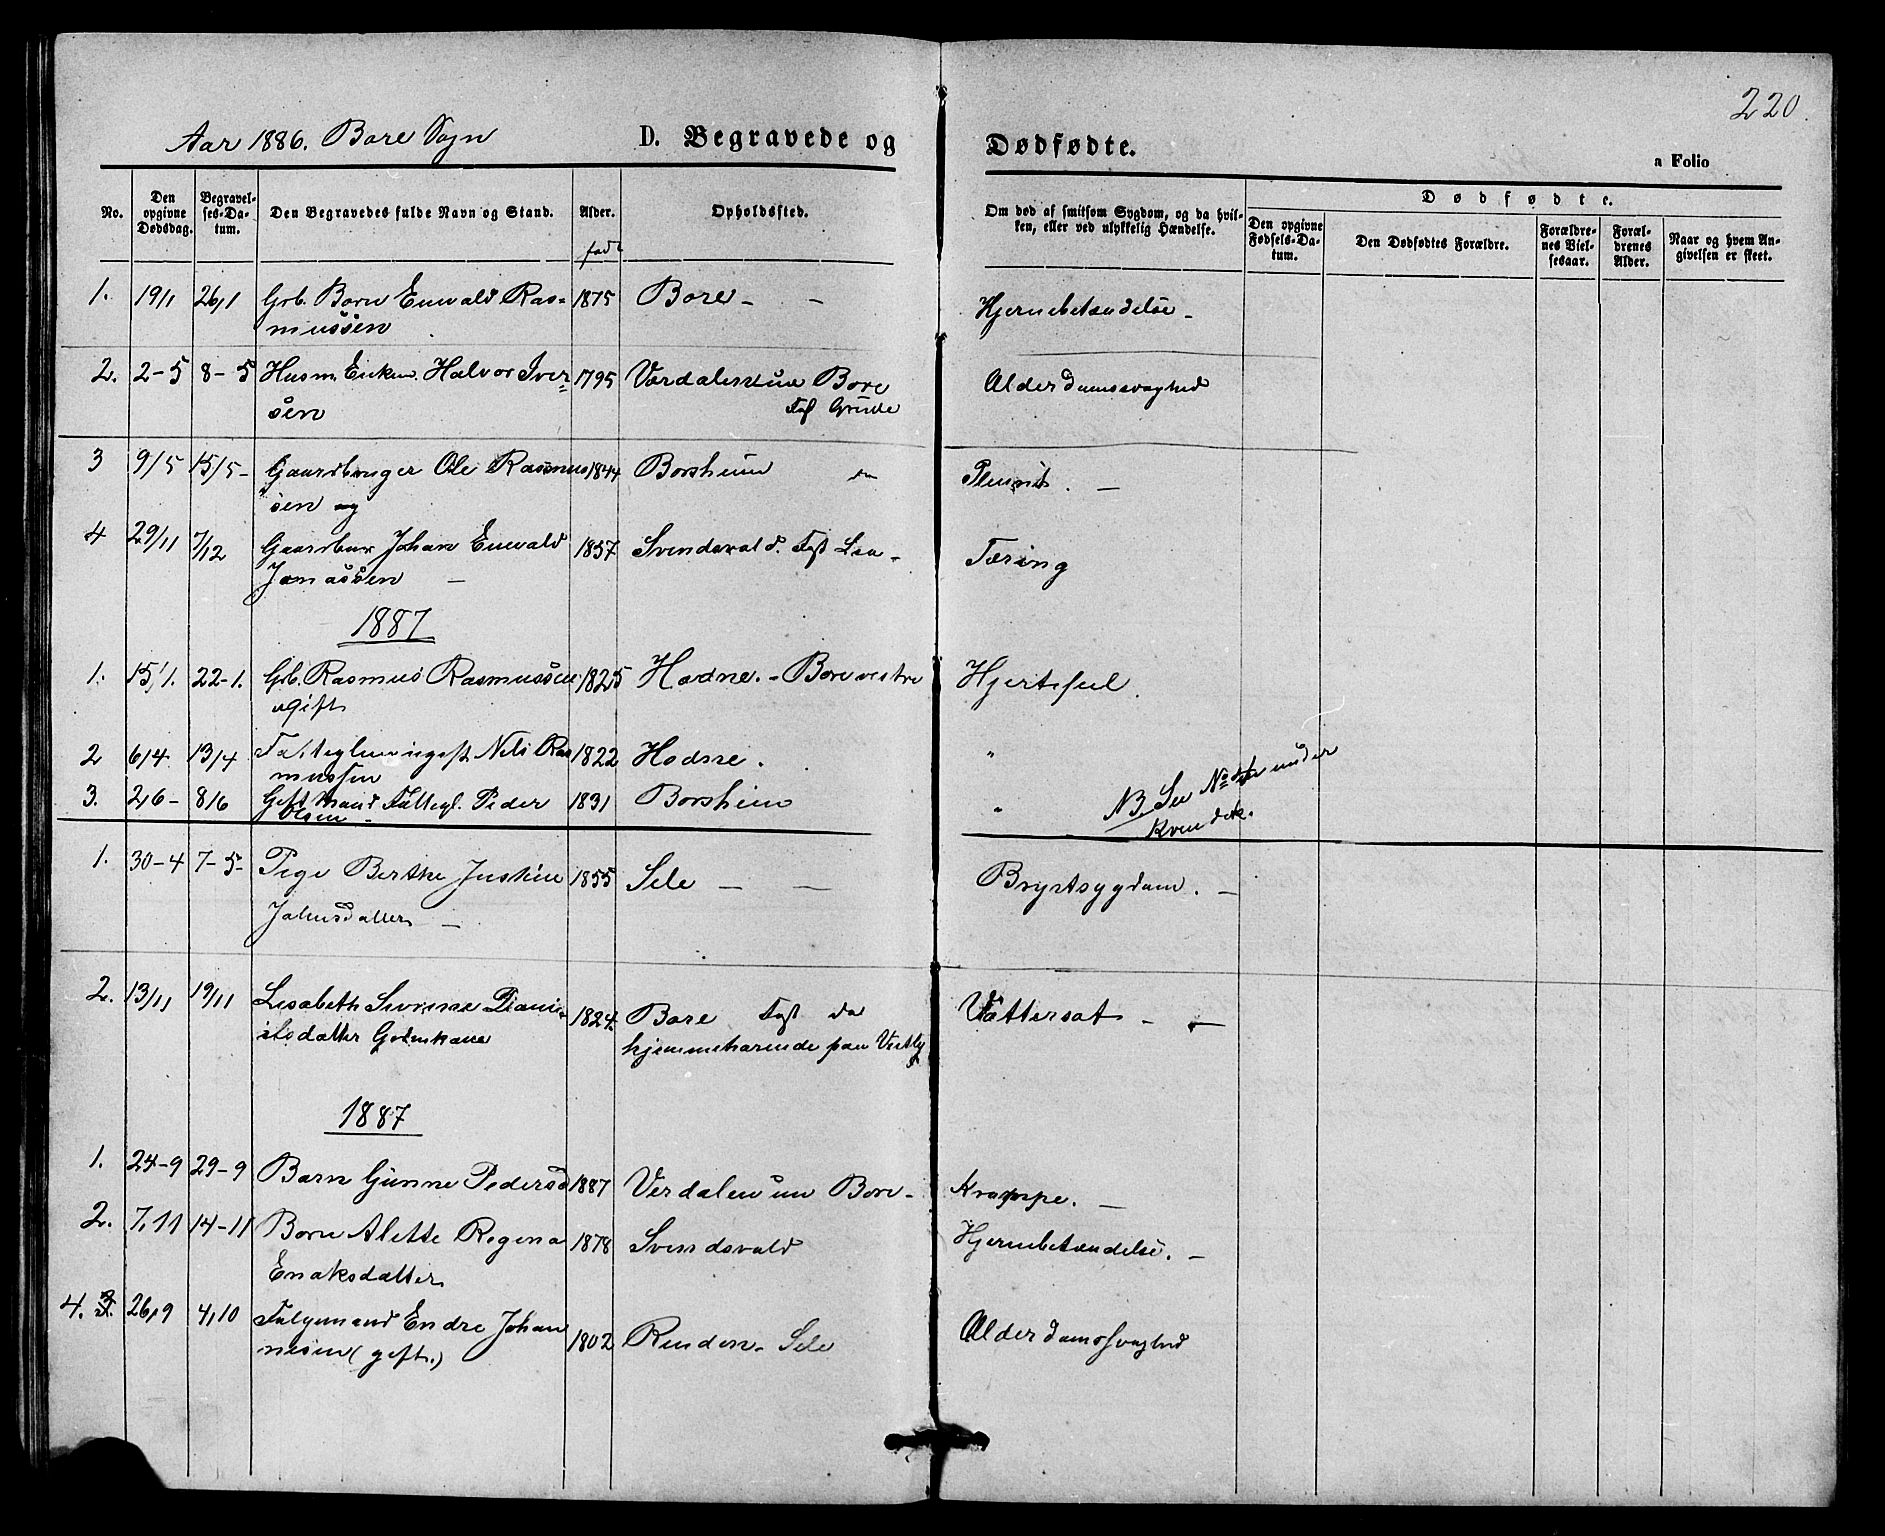 220.
Aar 1886. Bore Sogn
D. Begravede og Dødfødte.
a Folio
No.
Den opgivne Dødsdag.
Begravelses-Datum.
Den Begravedes fulde Navn og Stand.
Alder.
født
Opholdssted.
Om død af smitsom Sygdom, og da hvilken, eller ved ulykkelig Hændelse.
Dødfødte.
Den opgivne Fødsels-Datum.
Den Dødfødtes Forældre.
Forældrenes Vielsesaar.
Forældrenes Alder.
Naar og hvem Angivelsen er skeet.
1. 19/1 26/1 Grb. Barn Enevald Ras= 1875 Bore - - Hjernebetændelse -
mussen
2. 2-5 8-5 Husm. Enkem. Halvor Iver= 1795 Værdalen Bore Alderdomssvaghed
sen
3 9/5 15/5- Gaardbruger Ole Rasmus 1844 Borsheim do
sen og
4 29/11 7/12 Gaardbr. Johan Enevald 1857 Svendsvold. Tæring
Jonassen -
1887
1. 15/1. 22-1. Grb. Rasmus Rasmussen 1825 Hodne. - Bore vestre Hjertefeil.
ugift
2 6/4 13/4 Nils Ras 1822 Hodne. "
mussen
3. 2/6- 8/6 Gift Mand Fattegl. Peder 1831 Borsheim "
Olsen -
NB. See No under
Kvindek.
1. 30-4 7-5- Pige Berthe Justine 1855 Sele - - Brystsygdom. -
Johnsdatter -
2. 13/11 19/11 Lisabeth Surine 1824. Bore do Vattersot - -
datter
hjemmehørende paa
1887
1. 24-9 29-9 Barn Gunne Pedersd 1887 Verdalen Bore - Krampe. -
2. 7/11 14-11 Barn Alette Regina 1878 Svendsvold Hjernebetændelse. -
Enoksdatter
4. 3. 26/9 4/10 Endre Johan 1802 Sele Alderdomssvaghed
nesen (gift.)